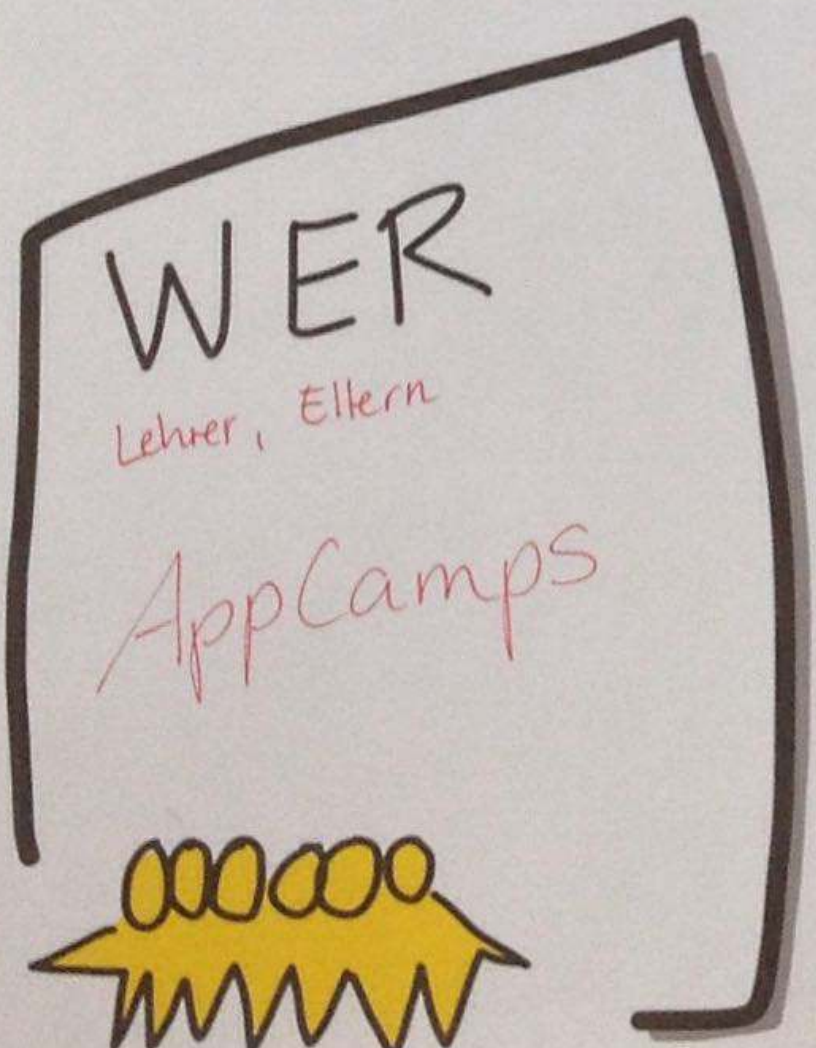 WER
Lehrer, Eltern
AppCamps